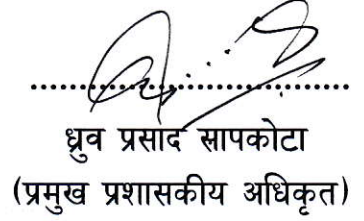 ध्रुव प्रसाद सापकोटा
(प्रमुख प्रशासकीय अधिकृत)